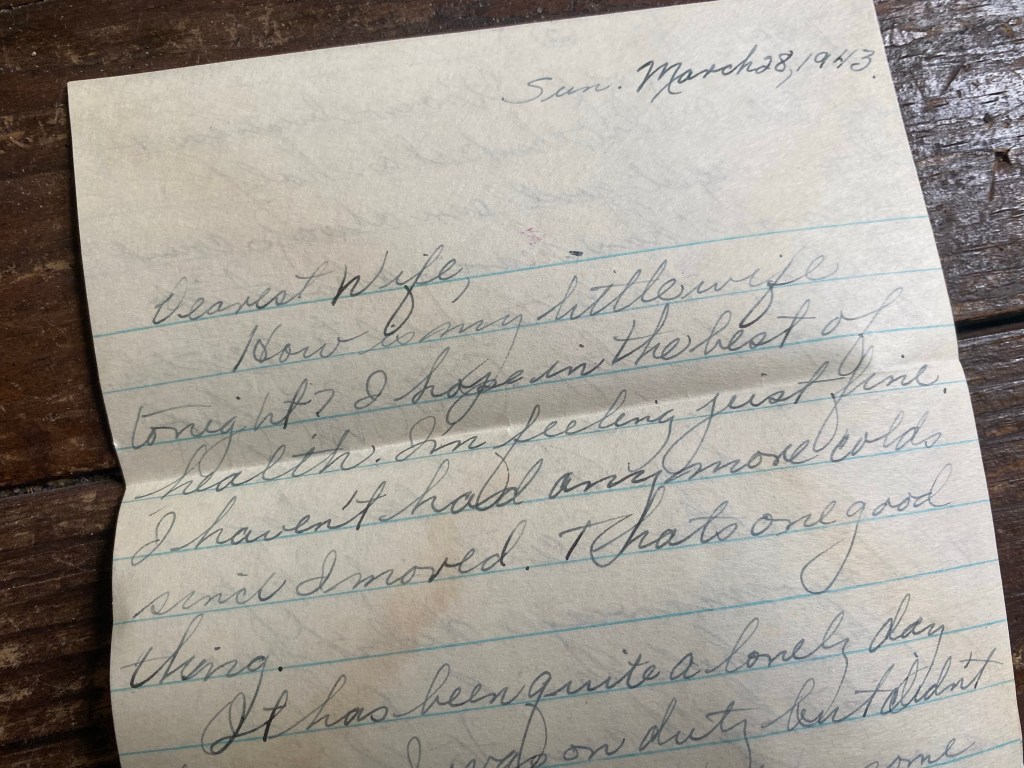 Sun. March 28, 1943.
Dearest Wife,
How is my little wife
tonight? I hope in the best of
health. Im feeling just fine.
I haven't had any more colds
since I moved. Thats one good
thing.
It has been quite a lonely day
I was on duty but didn't
some